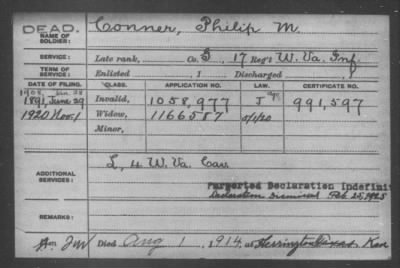 DEAD.
NAME OF SOLDIER: Conner, Philip M.
SERVICE: Late rank, Co. G, 17 Reg't W. Va. Inf.
TERM OF SERVICE: Enlisted , 1 Discharged , 1
DATE OF FILING. CLASS. APPLICATION NO. LAW. CERTIFICATE NO.
1891, June 29 Invalid, 1058,977 J 991,597
1920 Nov. 1 Widow, 1166587 5/1/20
Minor,
ADDITIONAL SERVICES: L, 4 W. Va. Cav
Purported Declaration Indefinit
Declaration Dismissed Feb 25, 1925
REMARKS:
Died Aug 1, 1914, at Herrington Kan